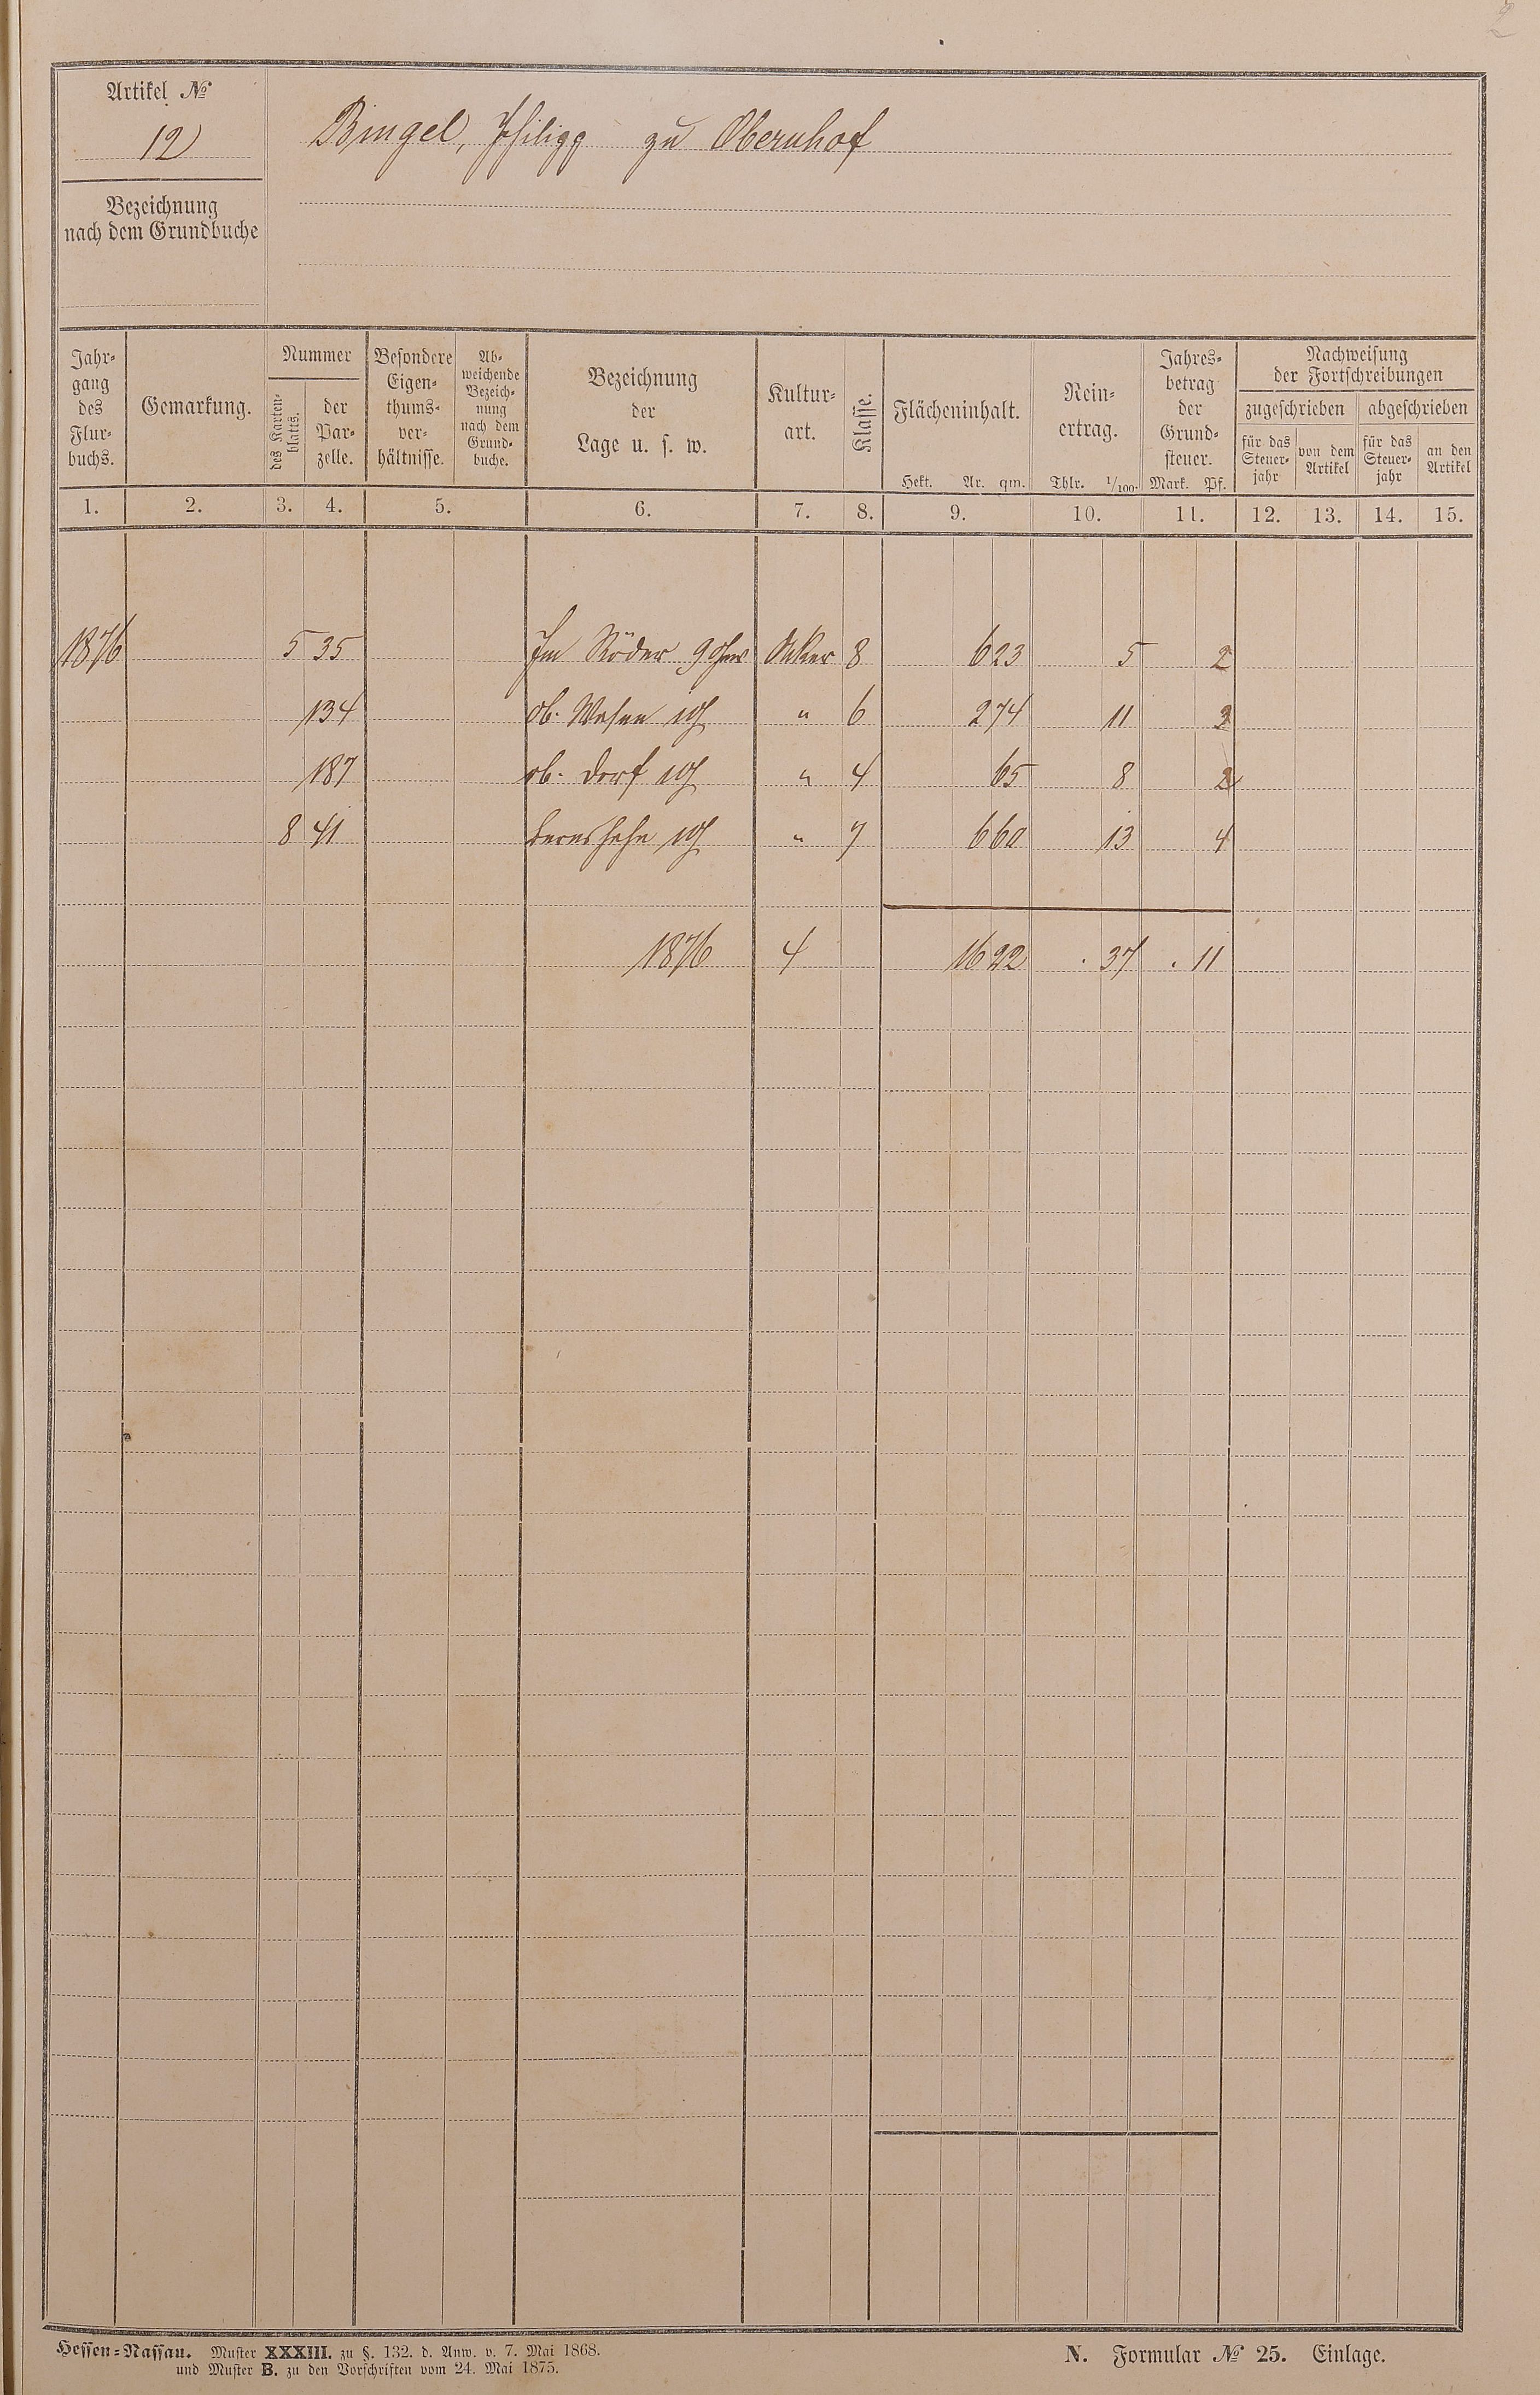 2
Artikel №
12
Bingel, Philipp zu Obernhof
Bezeichnung
nach dem Grundbuche
Jahr-
gang
des
Flur-
buchs.
Gemarkung.
Nummer
des Karten-
blatts.
der
Par-
zelle.
Besondere
Eigen-
thums-
ver-
hältnisse.
Ab-
weichende
Bezeich-
nung
nach dem
Grund-
buche.
Bezeichnung
der
Lage u. s. w.
Kultur-
art.
Klasse.
Flächeninhalt.
Hekt. Ar. qm.
Rein-
ertrag.
Thlr. 1/100.
Jahres-
betrag
der
Grund-
steuer.
Mark. Pf.
Nachweisung
der Fortschreibungen
zugeschrieben abgeschrieben
für das
Steuer-
jahr
von dem
Artikel
für das
Steuer-
jahr
an den
Artikel
1. 2. 3. 4. 5. 6. 7. 8. 9. 10. 11. 12. 13. 14. 15.
1876 5 35 Im Röder Acker 8 6 23 5 2
134 ob. " 6 2 74 11 3
187 ob. Dorf " 4 65 8 2
8 41 " 7 6 60 13 4
1876 4 16 22 . 37 . 11
Hessen-Nassau. Muster XXXIII. zu §. 132. d. Anw. v. 7. Mai 1868.
und Muster B. zu den Vorschriften vom 24. Mai 1875.
N. Formular № 25. Einlage.